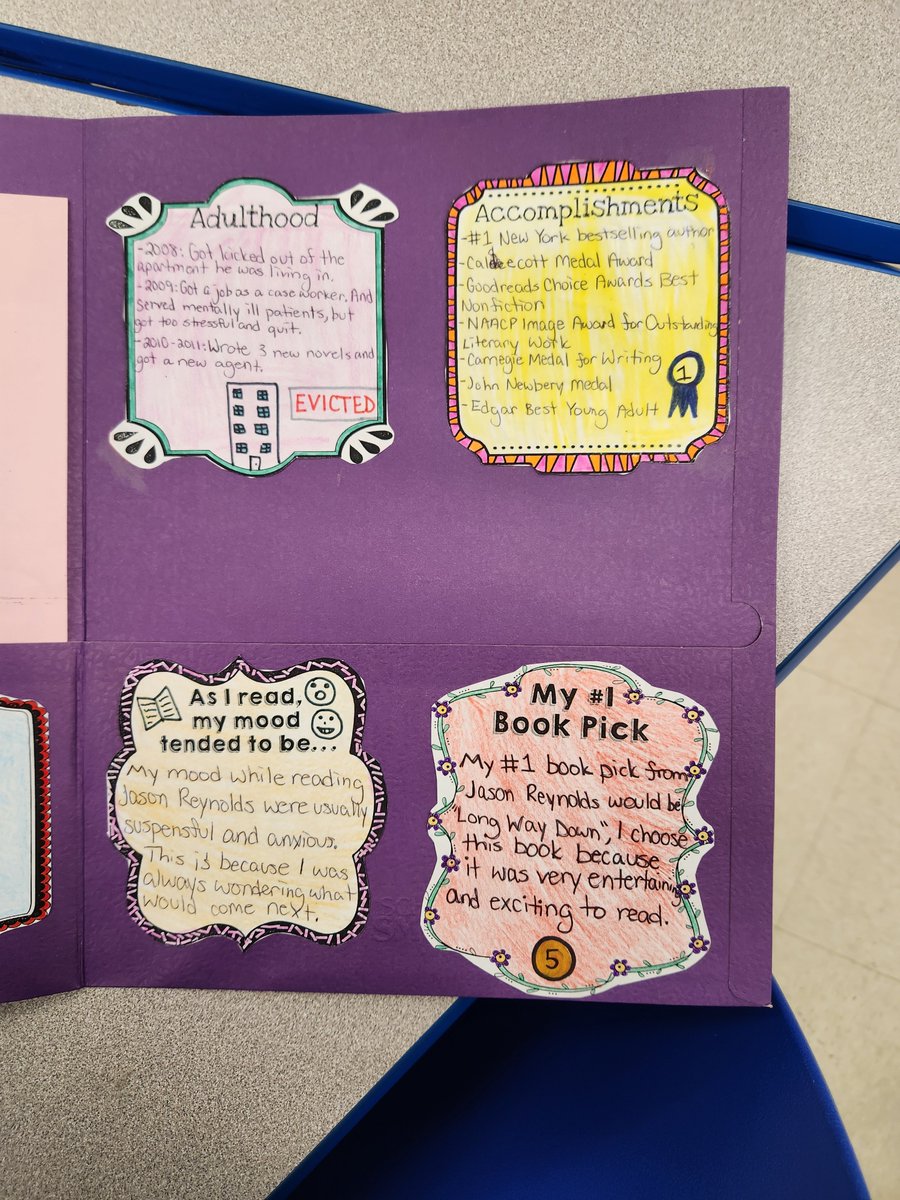 Adulthood
-2008: Got kicked out of the
apartment he was living in.
-2009: Got a job as a case worker. And
served mentally ill patients, but
got too stressful and quit.
-2010-2011: Wrote 3 new novels and
got a new agent.
EVICTED
Accomplishments
-#1 New York bestselling author
-Caldecott Medal Award
-Goodreads Choice Awards Best
Nonfiction
-NAACP Image Award for Outstanding
Literary Work
-Carnegie Medal for Writing
-John Newbery Medal
-Edgar Best Young Adult
1
As I read,
my mood
tended to be...
My mood while reading
Jason Reynolds were usually
suspensful and anxious.
This is because I was
always wondering what
would come next.
My #1
Book Pick
My #1 book pick from
Jason Reynolds would be
"Long Way Down", I choose
this book because
it was very entertaining
and exciting to read.
5